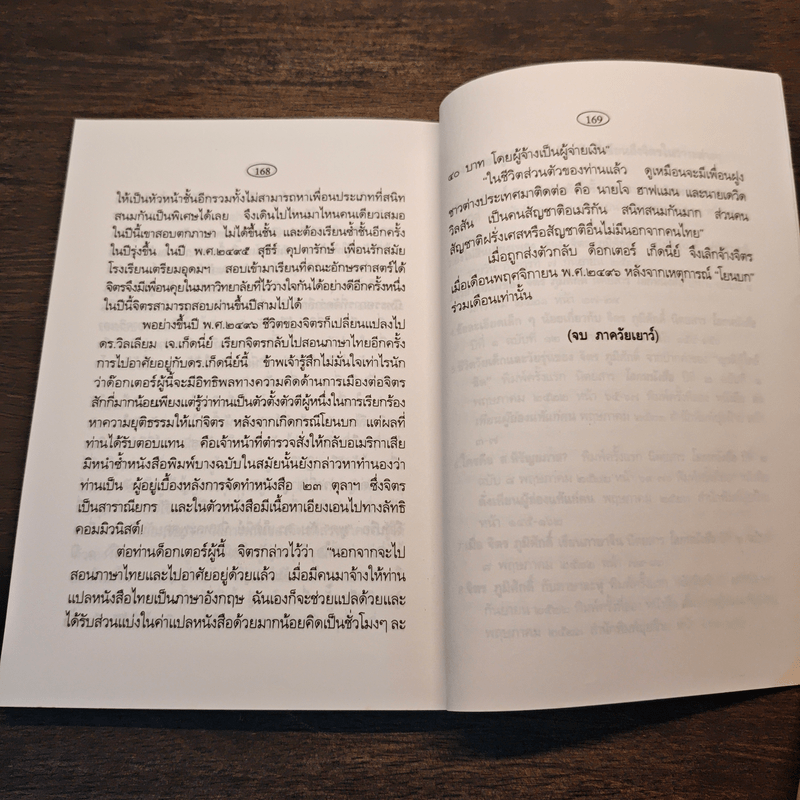 168
ให้เป็นหัวหน้าชั้นอีกรวมทั้งไม่สามารถหาเพื่อนประเภทที่สนิท
สนมกันเป็นพิเศษได้เลย จึงเดินไปไหนมาไหนคนเดียวเสมอ
ในปีนี้เขาสอบตกภาษา ไม่ได้ขึ้นชั้น และต้องเรียนซ้ำชั้นอีกครั้ง
ในปีรุ่งขึ้น ในปี พ.ศ.๒๔๙๕ สุธีร์ คุปตารักษ์ เพื่อนรักสมัย
โรงเรียนเตรียมอุดมฯ สอบเข้ามาเรียนที่คณะอักษรศาสตร์ได้
จิตรจึงมีเพื่อนคุยในมหาวิทยาลัยที่ไว้วางใจกันได้อย่างดีอีกครั้งหนึ่ง
ในปีนี้จิตรสามารถสอบผ่านขึ้นปีสามไปได้
พอย่างขึ้นปี พ.ศ.๒๔๙๖ ชีวิตของจิตรก็เปลี่ยนแปลงไป
ดร.วิลเลียม เจ.เก็ดนี่ย์ เรียกจิตรกลับไปสอนภาษาไทยอีกครั้ง
การไปอาศัยอยู่กับดร.เก็ดนี่ย์นี้ ข้าพเจ้ารู้สึกไม่มั่นใจเท่าไรนัก
ว่าด๊อกเตอร์ผู้นี้จะมีอิทธิพลทางความคิดด้านการเมืองต่อจิตร
สักกี่มากน้อยเพียงแต่รู้ว่าท่านเป็นตัวตั้งตัวตีผู้หนึ่งในการเรียกร้อง
หาความยุติธรรมให้แก่จิตร หลังจากเกิดกรณีโยนบก แต่ผลที่
ท่านได้รับตอบแทน คือเจ้าหน้าที่ตำรวจสั่งให้กลับอเมริกาเสีย
มิหนำซ้ำหนังสือพิมพ์บางฉบับในสมัยนั้นยังกล่าวหาทำนองว่า
ท่านเป็น ผู้อยู่เบื้องหลังการจัดทำหนังสือ ๒๓ ตุลาฯ ซึ่งจิตร
เป็นสาราณียกร และในตัวหนังสือมีเนื้อหาเอียงเอนไปทางลัทธิ
คอมมิวนิสต์!
ต่อท่านด็อกเตอร์ผู้นี้ จิตรกล่าวไว้ว่า “นอกจากจะไป
สอนภาษาไทยและไปอาศัยอยู่ด้วยแล้ว เมื่อมีคนมาจ้างให้ท่าน
แปลหนังสือไทยเป็นภาษาอังกฤษ ฉันเองก็จะช่วยแปลด้วยและ
ได้รับส่วนแบ่งในค่าแปลหนังสือด้วยมากน้อยคิดเป็นชั่วโมงๆ ละ
169
๔๐ บาท โดยผู้จ้างเป็นผู้จ่ายเงิน”
“ในชีวิตส่วนตัวของท่านแล้ว ดูเหมือนจะมีเพื่อนฝูง
ชาวต่างประเทศมาติดต่อ คือ นายโจ ฮาฟแมน และนายเดวิด
วิลสัน เป็นคนสัญชาติอเมริกัน สนิทสนมกันมาก ส่วนคน
สัญชาติฝรั่งเศสหรือสัญชาติอื่นไม่มีนอกจากคนไทย”
เมื่อถูกส่งตัวกลับ ด็อกเตอร์ เก็ดนี่ย์ จึงเลิกจ้างจิตร
เมื่อเดือนพฤศจิกายน พ.ศ.๒๔๙๖ หลังจากเหตุการณ์ “โยนบก”
ร่วมเดือนเท่านั้น
(จบ ภาควัยเยาว์)